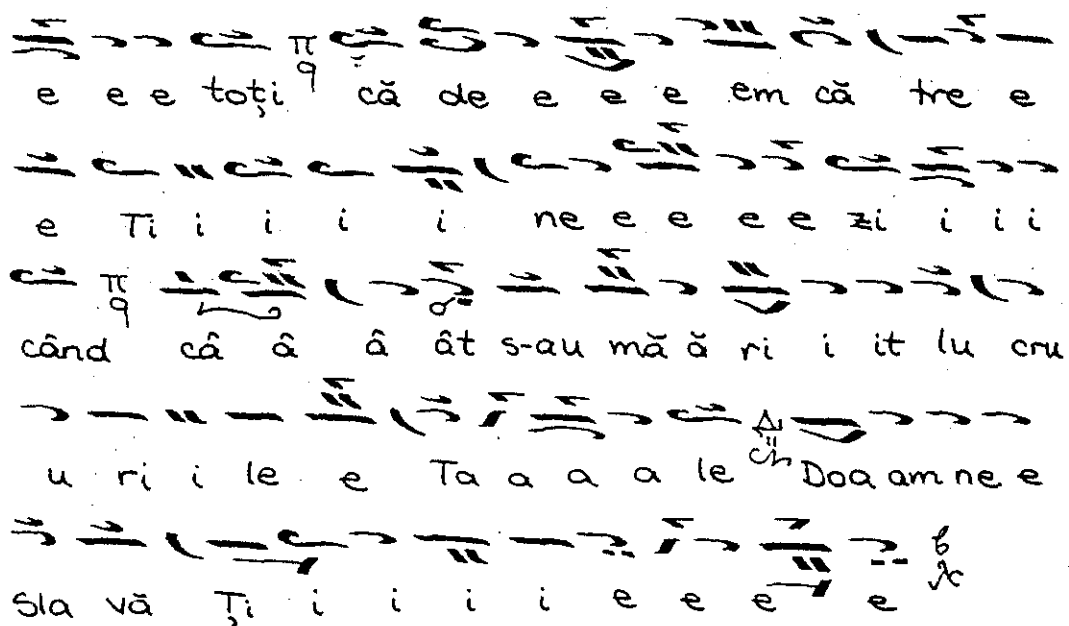 e e e toți că de e e e em că tre e
e Ti i i i i ne e e e e zi i i i
când câ â â ât s-au mă ă ri i it lu cru
u ri i le e Ta a a a le Doa am ne e
Sla vă Ți i i i i e e e e